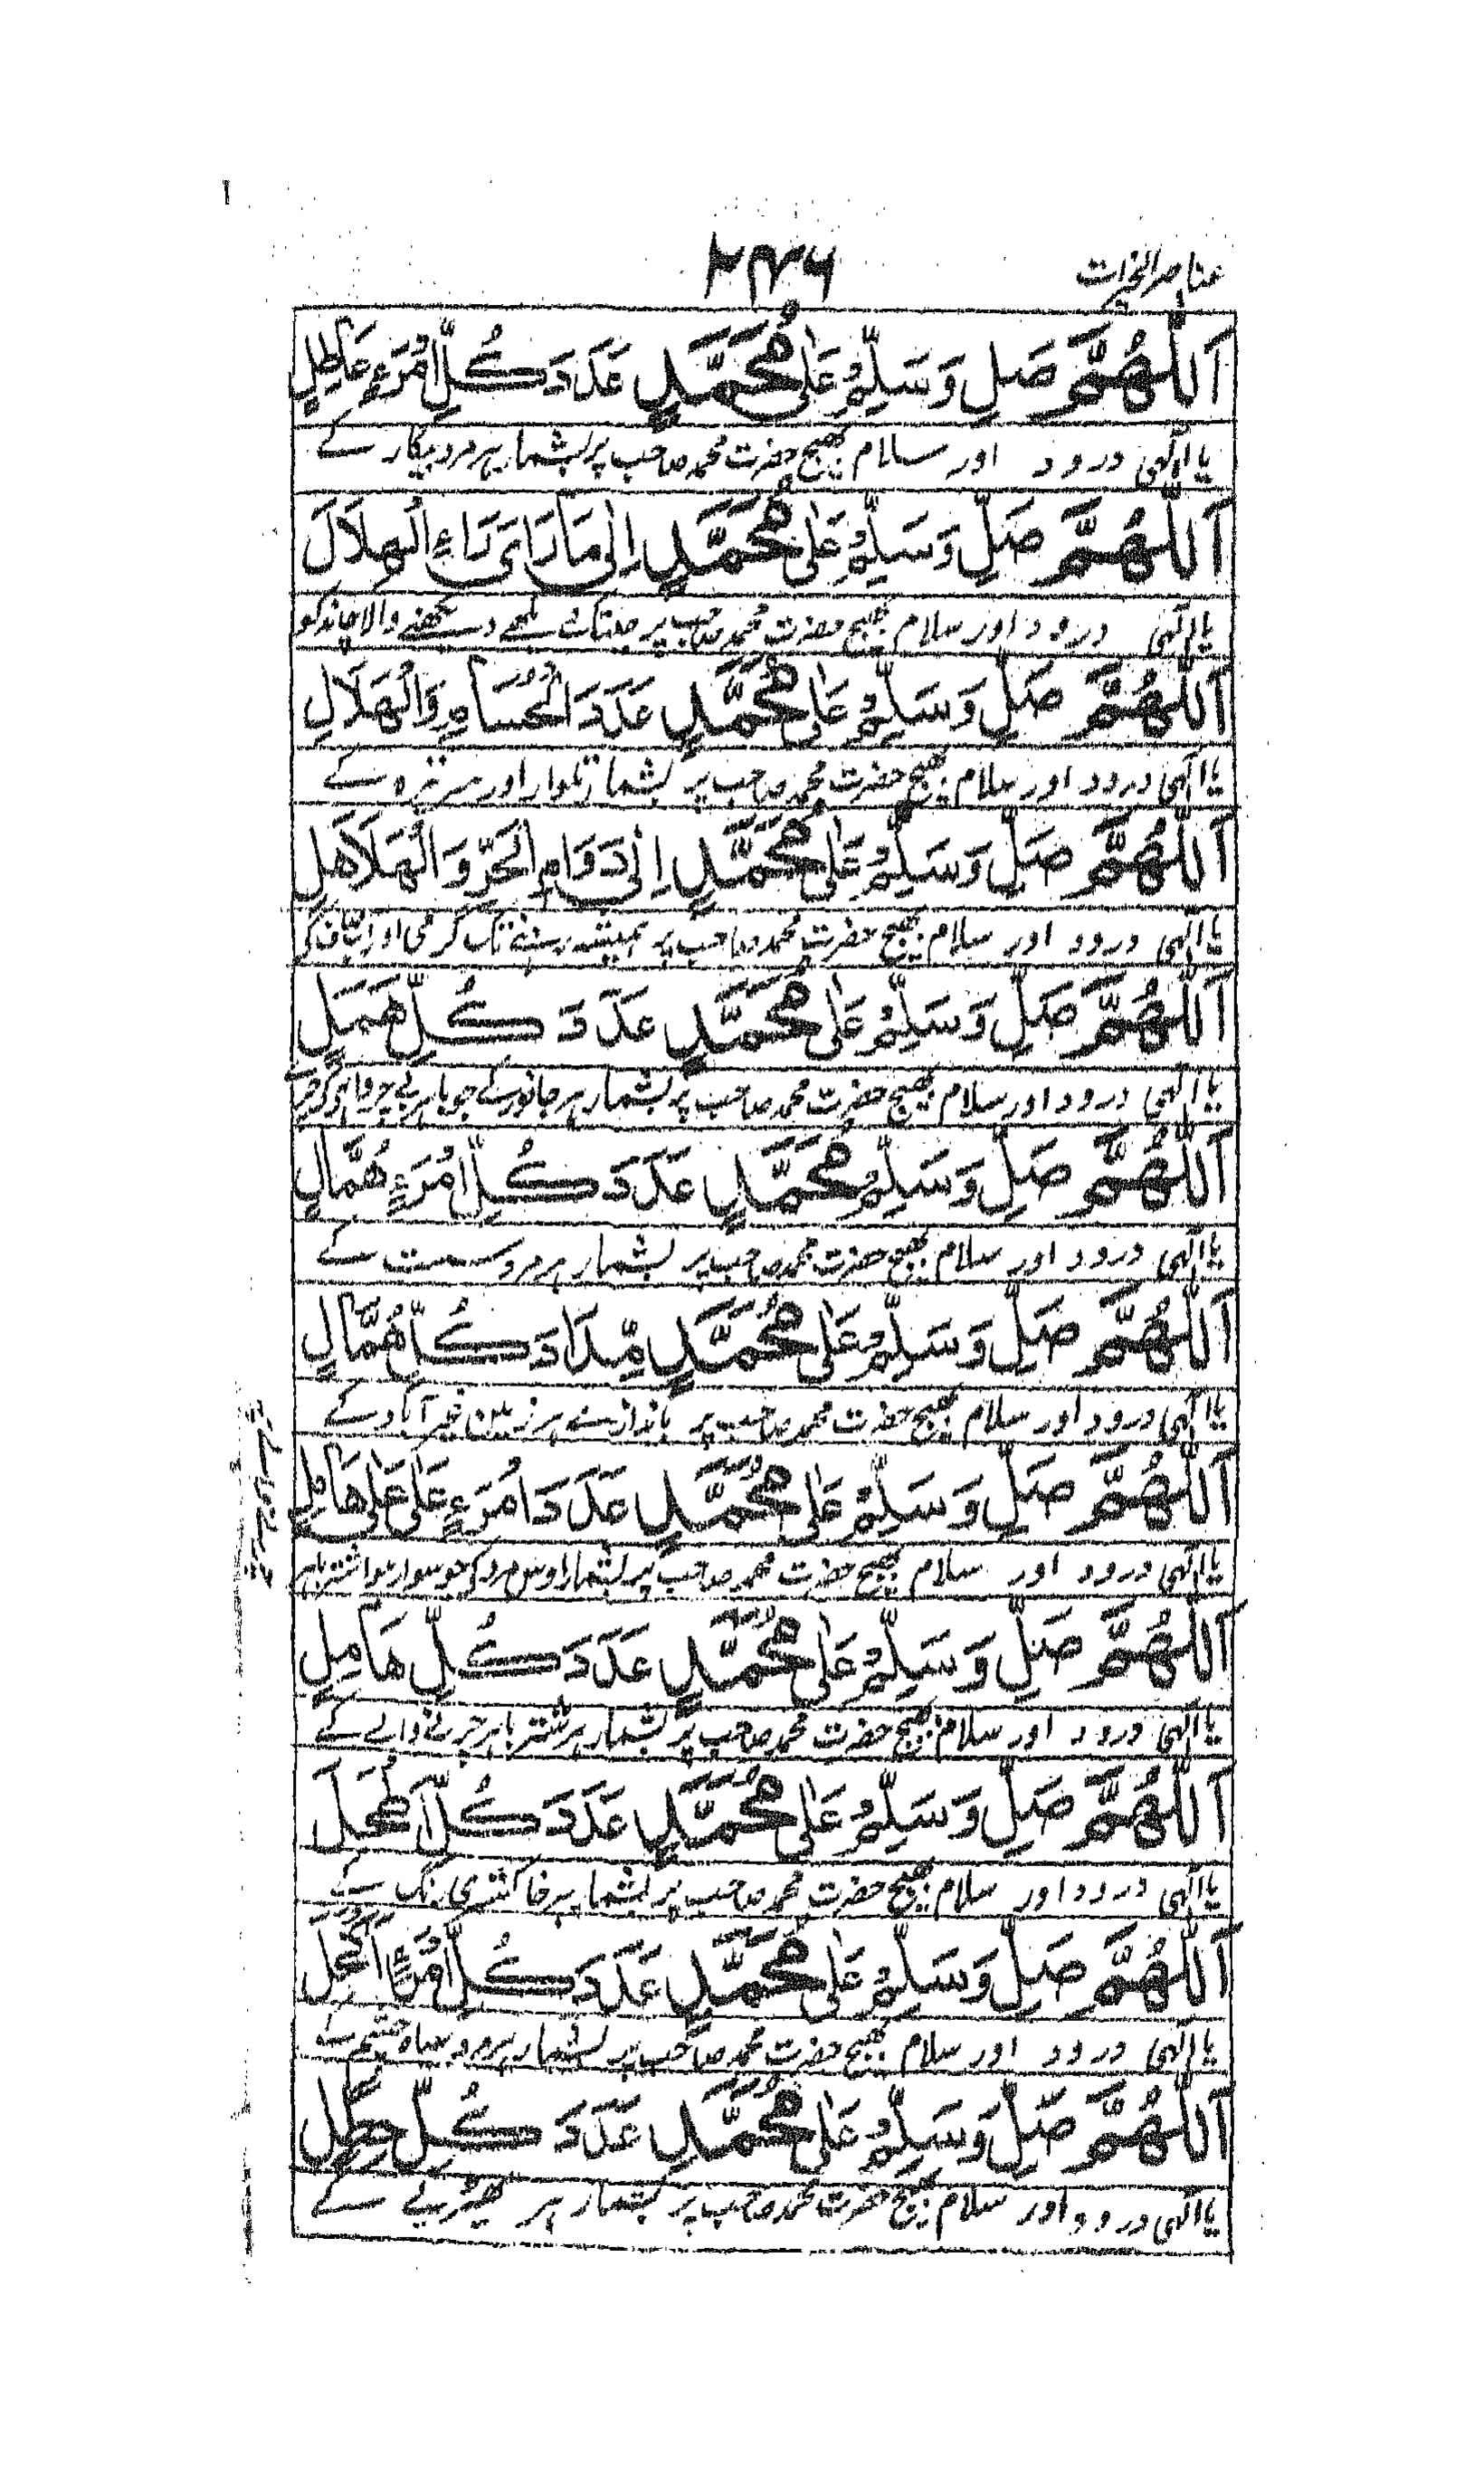 عناصر الخیرات
۲۳۶
اَللّٰهُمَّ صَلِّ وَسَلِّمْ عَلٰى مُحَمَّدٍ عَدَدَ كُلِّ امْرَءٍ عَاطِلٍ
یا الٰہی درود اور سلام بھیج حضرت محمد صاحب پر بشمار ہر مرد بیکار کے
اَللّٰهُمَّ صَلِّ وَسَلِّمْ عَلٰى مُحَمَّدٍ اِلٰى مَا رَاٰى رَاءِ الْهِلَالَ
یا الٰہی درود اور سلام بھیج حضرت محمد صاحب پر دیکھنے والا چاند کو
اَللّٰهُمَّ صَلِّ وَسَلِّمْ عَلٰى مُحَمَّدٍ عَدَدَ الْحُسَامِ وَالْهَلَالِ
یا الٰہی درود اور سلام بھیج حضرت محمد صاحب پر بشمار تلوار اور سر نیزہ کے
اَللّٰهُمَّ صَلِّ وَسَلِّمْ عَلٰى مُحَمَّدٍ اِلٰى دَوَامِ الْحَرِّ وَالْهَلَاهَلِ
یا الٰہی درود اور سلام بھیج حضرت محمد صاحب پر ہمیشہ رہنے تک گرمی اور
اَللّٰهُمَّ صَلِّ وَسَلِّمْ عَلٰى مُحَمَّدٍ عَدَدَ كُلِّ هَمَلٍ
یا الٰہی درود اور سلام بھیج حضرت محمد صاحب پر بشمار ہر جانور کے جو باہر بے چرواہی کے
اَللّٰهُمَّ صَلِّ وَسَلِّمْ مُحَمَّدٍ عَدَدَ كُلِّ امْرَءٍ هُمَّالٍ
یا الٰہی درود اور سلام بھیج حضرت محمد صاحب پر بشمار ہر مرد سست کے
اَللّٰهُمَّ صَلِّ وَسَلِّمْ عَلٰى مُحَمَّدٍ مِّدَادَ كُلِّ هُمَّالٍ
یا الٰہی درود اور سلام بھیج حضرت محمد صاحب پر باندازے ہر زمین غیر آباد کے
اَللّٰهُمَّ صَلِّ وَسَلِّمْ عَلٰى مُحَمَّدٍ عَدَدَ امْرَءٍ عَلٰى عَلٰى هَامِلٍ
یا الٰہی درود اور سلام بھیج حضرت محمد صاحب پر بشمار اوس مرد کو جو سوار ہوا شتر باہر
اَللّٰهُمَّ صَلِّ وَسَلِّمْ عَلٰى مُحَمَّدٍ عَدَدَ كُلِّ هَامِلٍ
یا الٰہی درود اور سلام بھیج حضرت محمد صاحب پر بشمار ہر شتر باہر چرنے والے کے
اَللّٰهُمَّ صَلِّ وَسَلِّمْ عَلٰى مُحَمَّدٍ عَدَدَ كُلِّ اَطْحَلَ
یا الٰہی درود اور سلام بھیج حضرت محمد صاحب پر بشمار ہر خاکستری رنگ کے
اَللّٰهُمَّ صَلِّ وَسَلِّمْ عَلٰى مُحَمَّدٍ عَدَدَ كُلِّ امْرَءٍ اَكْحَلَ
یا الٰہی درود اور سلام بھیج حضرت محمد صاحب پر بشمار ہر مرد سیاہ چشم کے
اَللّٰهُمَّ صَلِّ وَسَلِّمْ عَلٰى مُحَمَّدٍ عَدَدَ كُلِّ حِطْلٍ
یا الٰہی درود اور سلام بھیج حضرت محمد صاحب پر بشمار ہر بھیڑیے کے